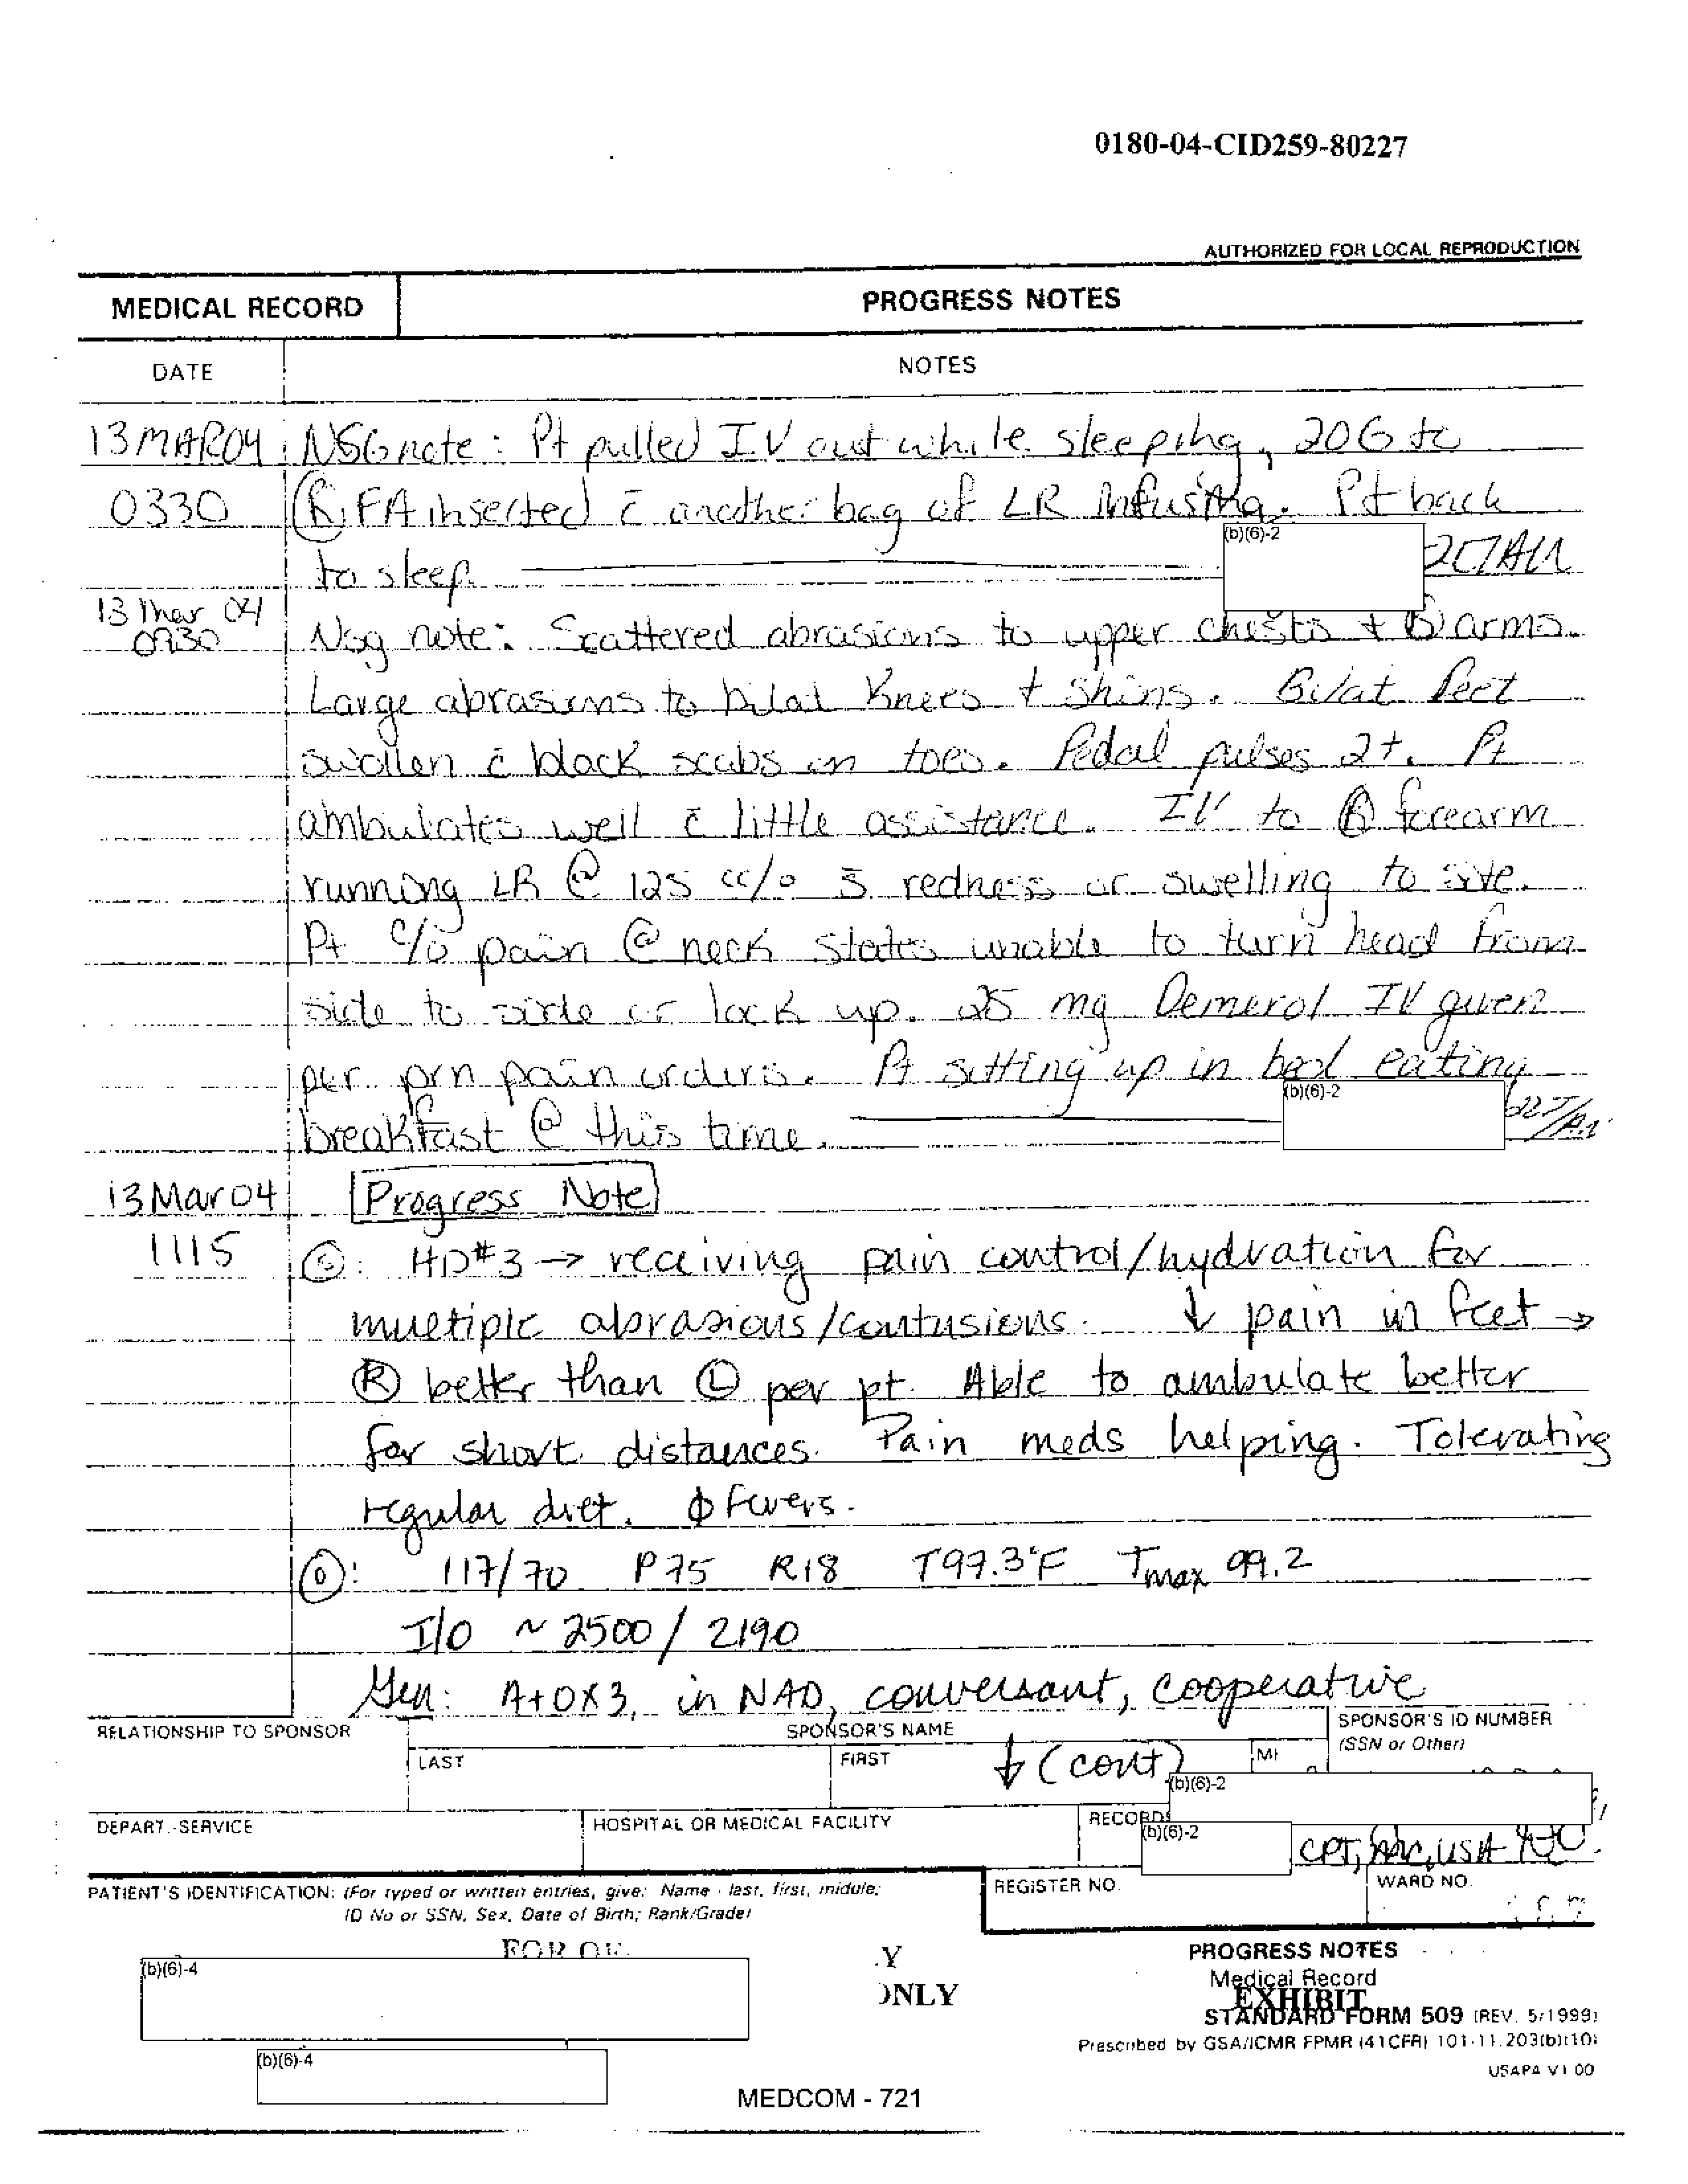 0180-04-CID259-80227
AUTHORIZED FOR LOCAL REPRODUCTION
MEDICAL RECORD PROGRESS NOTES
DATE NOTES
13MAR04 NSG note: Pt pulled IV out while sleeping, 20G to
0330 Ⓡ FA inserted c̄ another bag of LR infusing. Pt back
to sleep. (b)(6)-2
13 Mar 04 Nsg note: Scattered abrasions to upper chests + Ⓑ arms.
0930
Large abrasions to bilat knees + shins. Bilat feet
swollen c̄ black scabs on toes. Pedal pulses 2+. Pt
ambulates well c̄ little assistance. IV to Ⓡ forearm
running LR @ 125 cc/o s̄ redness or swelling to site.
Pt c/o pain @ neck states unable to turn head from
side to side or look up. 25 mg Demerol IV given
per prn pain orders. Pt sitting up in bed eating
breakfast @ this time. (b)(6)-2
13 Mar 04 Progress Note
1115 Ⓢ: HD#3 → receiving pain control/hydration for
multiple abrasions/contusions. ↓ pain in feet →
Ⓡ better than Ⓛ per pt. Able to ambulate better
for short distances. Pain meds helping. Tolerating
regular diet. ϕ fevers.
Ⓞ: 117/70 P 75 R18 T97.3°F Tmax 99.2
I/O ~ 2500 / 2190
Gen: A+OX3, in NAD, conversant, cooperative
RELATIONSHIP TO SPONSOR SPONSOR'S NAME SPONSOR'S ID NUMBER
(SSN or Other)
LAST FIRST MI
↓ (cont)
(b)(6)-2
DEPART.-SERVICE HOSPITAL OR MEDICAL FACILITY RECORDS
(b)(6)-2
CPT, USA
PATIENT'S IDENTIFICATION: (For typed or written entries, give: Name - last, first, middle;
ID No or SSN, Sex, Date of Birth; Rank/Grade)
REGISTER NO. WARD NO.
FOR
Y
ONLY
(b)(6)-4
(b)(6)-4
PROGRESS NOTES
Medical Record
EXHIBIT
STANDARD FORM 509 (REV. 5/1999)
Prescribed by GSA/ICMR FPMR (41CFR) 101-11.203(b)(10)
USAPA V1.00
MEDCOM - 721